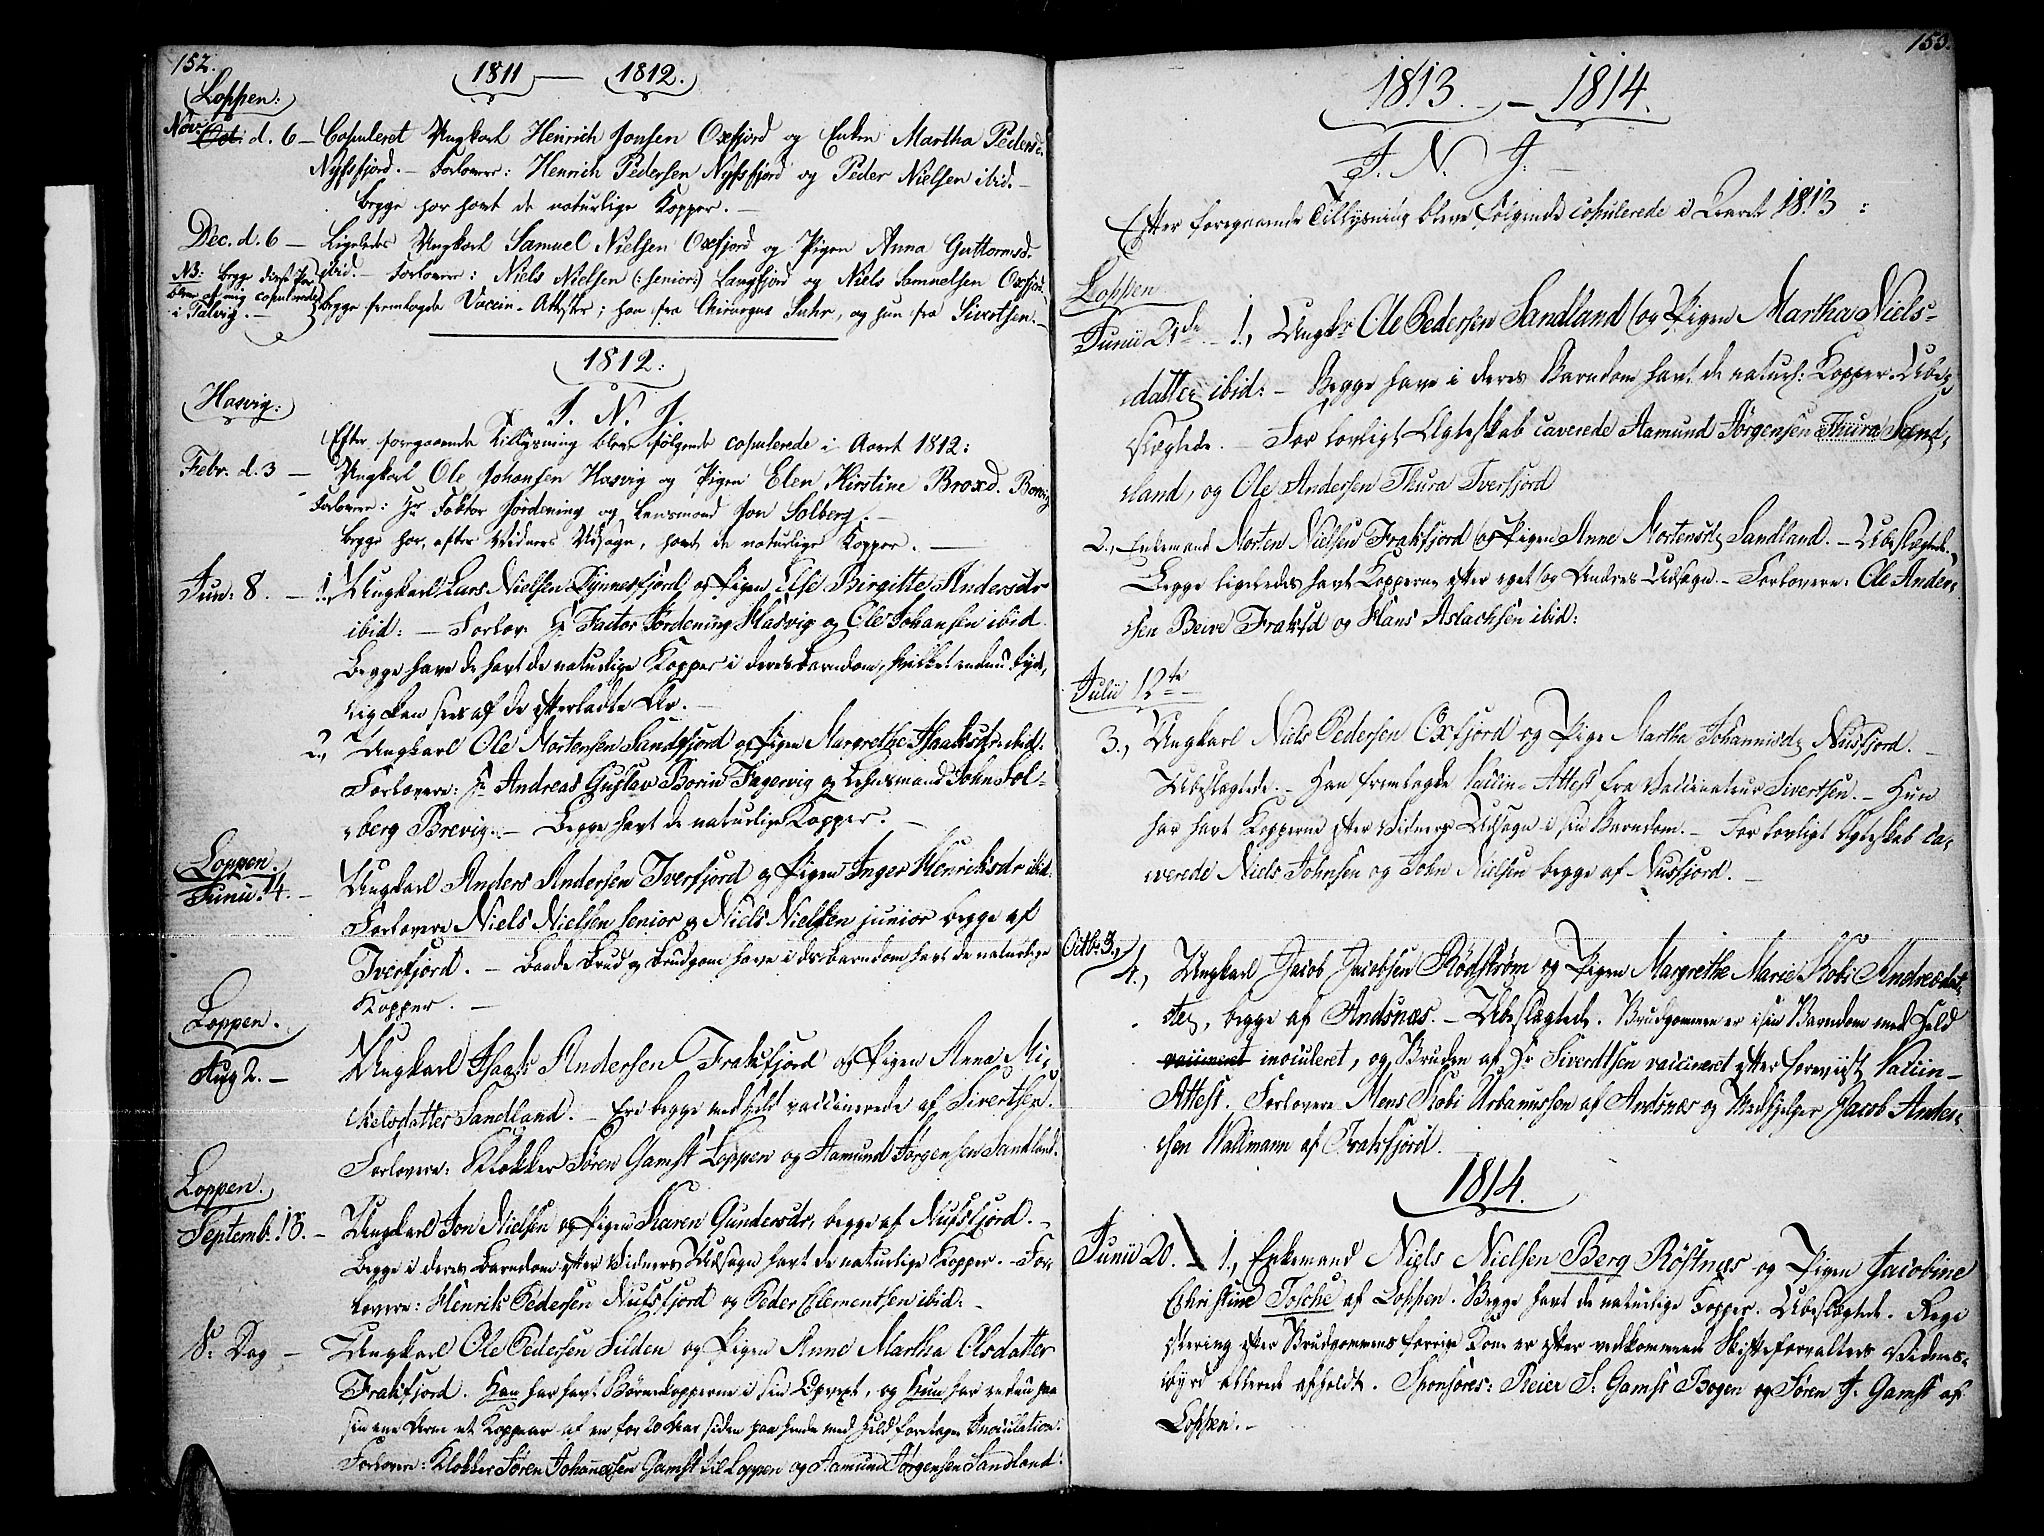 152.
1811 — 1812.
Loppen:
Nov: Oct. d. 6 — Copuleret Ungkarl Heinrich Jonsen Oxfjord og Enken Martha Pedersd.
Nyssfjord. — Forlovere: Henrich Pedersen Nyssfjord og Peder Nielsen ibid. —
begge har havt de naturlige Kopper. —
Dec. d. 6 — Ligeledes Ungkarl Samuel Nielsen Oxfjord og Pigen Anna Guttormsd.
ibid. — Forlovere: Niels Nielsen (: senior:) Langfjord og Niels Samuelsen Oxfjord.
begge fremlagde Vaccin-Attester; han fra Chirurgus Suhr, og hun fra Sivertsen. —
NB: begge disse Par
blev af mig copulerede
i Talvig. —
1812:
Hasvig:
I. N. J.
Efter foregaaende Tillysning bleve følgende copulerede i Aaret 1812:
Febr. d. 3 — Ungkarl Ole Johansen Hasvig og Pigen Elen Kirstine Broxd. Borvig
Forlovere: Hr Faktor Jordening og Lensmand Jon Solberg. —
begge har, efter Vidners Udsagn, havt de naturlige Kopper. —
Jun: 8. — 1., Ungkarl Lars Nielsen Dynnesfjord og Pigen Else Birgitte Andersdr
ibid: — Forlov. Hr Factor Jordening Hasvig og Ole Johansen ibid.
Begge have de havt de naturlige Kopper i deres Barndom, hvilket endnu tyde-
lig kan sees af de efterladte Ar. —
2., Ungkarl Ole Mortensen Sandfjord og Pigen Margrethe Isaaksdr ibid.
Forlovere: Hr Andreas Gustav Borin Fagervig og Lehnsmand John Sol-
berg Brevig. — Begge havt de naturlige Kopper. —
Loppen.
Junii 14. — Ungkarl Anders Andersen Tverfjord og Pigen Inger Henriksdr ibid.
Forlovere Niels Nielsen senior og Niels Nielsen junior begge af
Tverfjord. — Baade Brud og Brudgom have i ds Barndom havt de naturlige
Kopper. —
Loppen.
Aug 2. — Ungkarl Isaak Andersen Frakfjord og Pigen Anna Mi-
kelsdatter Sandland. — Ere begge med Held vaccinerede af Sivertsen.
Forlovere: Klokker Søren Gamst Loppen og Aamund Jørgensen Sandland.
Loppen.
Septemb. 18. — Ungkarl Jon Nielsen og Pigen Karen Gundersdr, begge af Nufsfjord. —
Begge i deres Barndom efter Vidners Udsagn havt de naturlige Kopper. — For-
lovere: Henrik Pedersen Nufsfjord og Peder Clementsen ibid. —
S: Dag — Ungkarl Ole Pedersen Silden og Pigen Anne Martha Olsdatter
Frakfjord. Han har havt Børnekopperne i sin Opvext, og Hun har endnu paa
sin ene Arm et Koppear af en for 20 Aar siden paa hende med Held foretagen Inoculation.
Forlovere: Klokker Søren Johannesen Gamst til Loppen og Aamund Jørgensen Sandland.
153.
1813. — 1814.
I. N. J.
Efter foregaaende Tillysning bleve følgende copulerede i Aaret 1813:
Loppen
Junii 21de — 1., Ungkr Ole Pedersen Sandland og Pigen Martha Niels-
datter ibid: — Begge have i deres Barndom havt de naturl: Kopper. Ube-
slægtede. — For lovligt Ægteskab caverede Aamund Jørgensen Thura Sand-
land, og Ole Andersen Thura Tverfjord
2., Enkemand Morten Nielsen Frakfjord og Pigen Anne Mortensdr Sandland. — Ubeslægtede.
Begge ligeledes havt Kopperne efter eget og Andres Udsagn. — Forlovere: Ole Ander-
sen Beive Frakfd og Hans Aslachsen ibid:
Julii 12te
3., Ungkarl Niels Pedersen Oxfjord og Pige Martha Johannisdr Nusfjord. —
Ubeslægtede. — Han fremlagde Vaccin-Attest fra Vaccinateur Sivertsen. — Hun
har havt Kopperne efter Vidners Udsagn i sin Barndom. — For lovligt Ægteskab ca-
verede Niels Johnsen og John Nielsen begge af Nusfjord. —
Octb: 3.
4., Ungkarl Jacob Jacobsen Rødstrøm og Pigen Margrethe Marie Kobi Andreædat-
ter, begge af Andsnæs. — Ubeslægtede. Brudgommen er i sin Barndom med Held
vaccineret inoculeret, og Bruden af Hr Siverdtsen vaccineret efter foreviist Vaccin-
Attest. Forlovere Mons Kobi Urbanussen af Andsnæs og Medhjelper Jacob Ander-
sen Wallmann af Frakfjord.
1814.
Junii 20. 1., Enkemand Niels Nielsen Berg Röstnæs og Pigen Jacobine
Christine Tosche af Loppen. Begge havt de naturlige Kopper. Ubeslægtede. Regi-
strering efter Brudgommens forrige Kone er efter vedkommende Skifteforvalters Vidnes-
byrd allerede afholdt. Sponsores: Reier S: Gamst Bogen og Søren J. Gamst af
Loppen. —